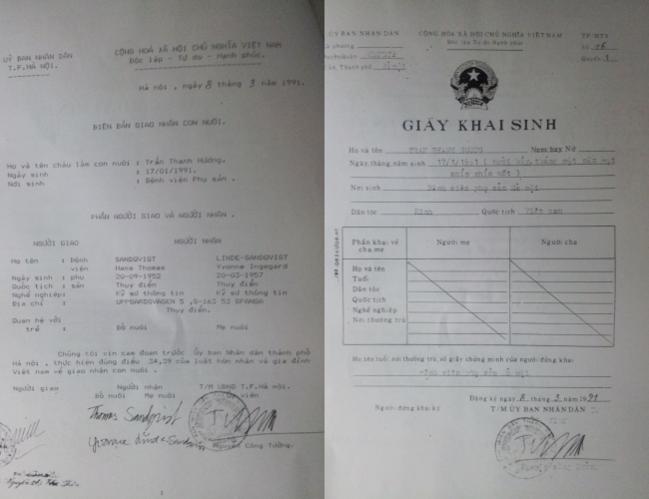 UỶ BAN NHÂN DÂN
T.P.HÀ NỘI.
CỘNG HOÀ XÃ HỘI CHỦ NGHĨA VIỆT NAM
Độc lập - Tự do - Hạnh phúc.
Hà nội, ngày 8 tháng 3 năm 1991.
BIÊN BẢN GIAO NHẬN CON NUÔI.
Họ và tên cháu làm con nuôi : Trần Thanh Hương.
Ngày sinh : 17/01/1991.
Nơi sinh : Bệnh viện Phụ sản.
PHẦN NGƯỜI GIAO VÀ NGƯỜI NHẬN.
NGƯỜI GIAO NGƯỜI NHẬN
Họ tên : Bệnh SANDQVIST LINDE-SANDQVIST
viện Hans Thomas Yvonne Ingegard
Ngày sinh : phụ 20-09-1952 20-03-1957
Quốc tịch : sản Thụy điển Thụy điển
Nghề nghiệp: Kỹ sư thông tin Kỹ sư thông tin
Địa chỉ : 5 ,S-163 52 SPANGA
Thụy điển.
Quan hệ với
trẻ : Bố nuôi Mẹ nuôi
Chúng tôi xin cam đoan trước Ủy ban Nhân dân thành phố
Hà nội, thực hiện đúng điều 34,39 của luật hôn nhân và gia đình
Việt nam về giao nhận con nuôi.
Người giao Người nhận T/M UBND T.P.Hà nội.
Bố nuôi Mẹ nuôi viên
Thomas Sandqvist
Yvonne Linde-Sandqvist
Nguyễn Công Tường.
ỦY BAN NHÂN DÂN
CỘNG HÒA XÃ HỘI CHỦ NGHĨA VIỆT NAM
Độc lập Tự do Hạnh phúc
TP/HT3
Số 06
Quyển 1
GIẤY KHAI SINH
Họ và tên Nam hay Nữ
Ngày tháng năm sinh 17/1/1991 ( mười bảy, tháng một năm một
nghìn chín mốt )
Nơi sinh Bệnh viện phụ sản Hà nội
Dân tộc Kinh Quốc tịch Việt nam
Phần khai về cha mẹ
Người mẹ
Người cha
Họ và tên
Tuổi
Dân tộc
Quốc tịch
Nghề nghiệp
Nơi thường trú
Họ tên tuổi, nơi thường trú, số giấy chứng minh của người đứng khai
Bệnh viện phụ sản Hà nội
Đăng ký ngày 8 tháng 3 năm 1991
Người đứng khai ký
T/M ỦY BAN NHÂN DÂN